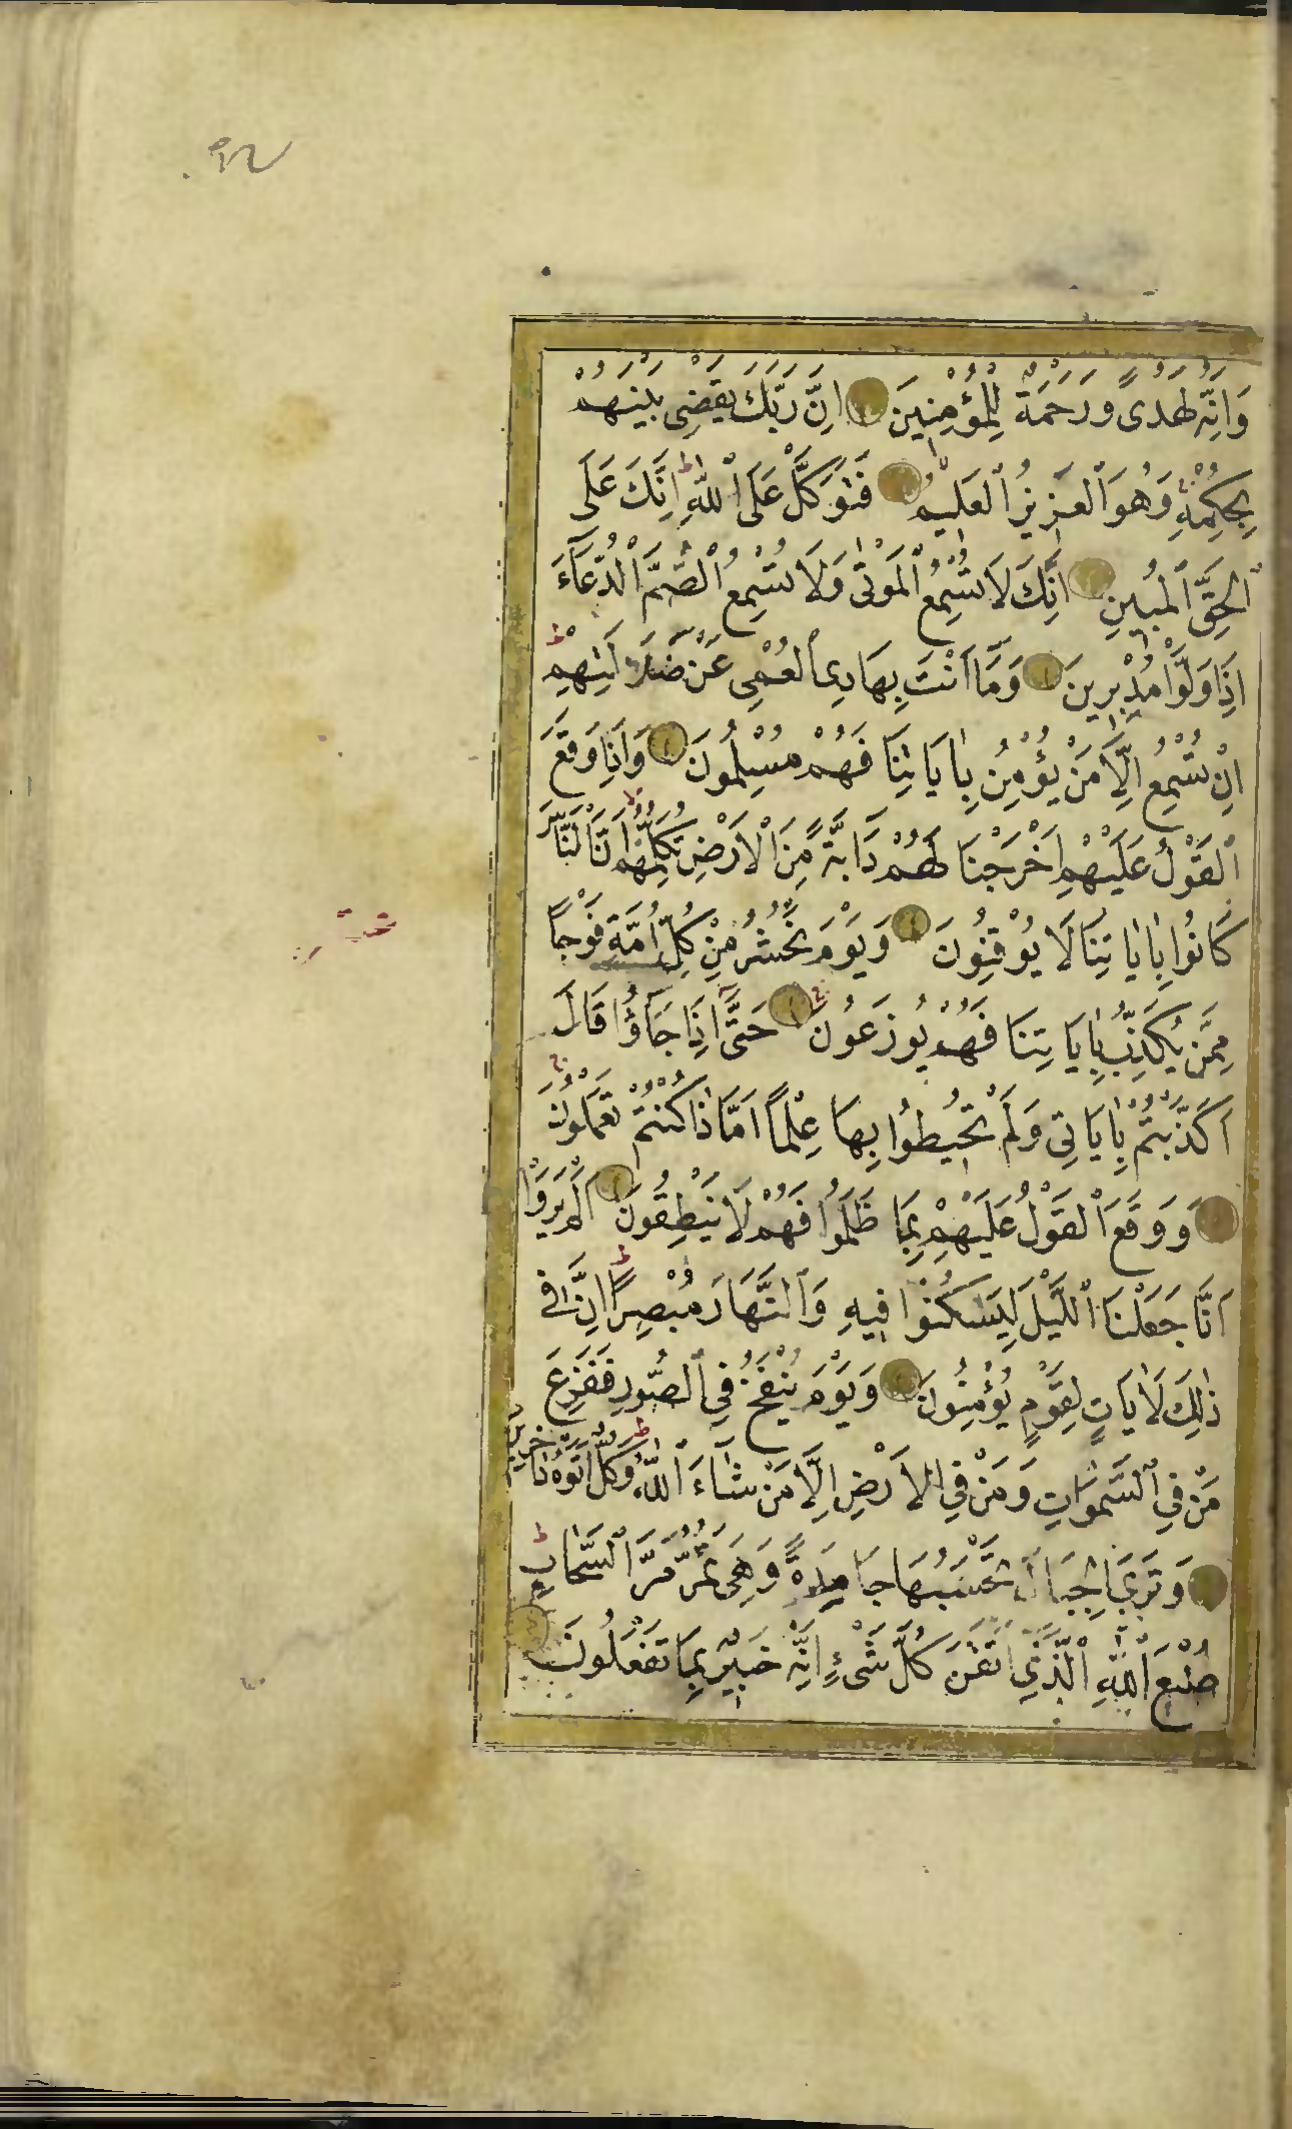 وَاِنَّهُ لَهُدًى وَرَحْمَةٌ لِلْمُؤْمِنِينَ اِنَّ رَبَّكَ يَقْضِى بَيْنَهُمْ
بِحُكْمِهِ وَهُوَ ٱلْعَزِيزُ ٱلْعَلِيمُ فَتَوَكَّلْ عَلَى ٱللّٰهِ اِنَّكَ عَلَى
ٱلْحَقِّ ٱلْمُبِينِ اِنَّكَ لَا تُسْمِعُ ٱلْمَوْتٰى وَلَا تُسْمِعُ ٱلصُّمَّ ٱلدُّعَآءَ
اِذَا وَلَّوْا مُدْبِرِينَ وَمَٓا اَنْتَ بِهَادِى ٱلْعُمْىِ عَنْ ضَلَالَتِهِمْ
اِنْ تُسْمِعُ اِلَّا مَنْ يُؤْمِنُ بِاٰيَاتِنَا فَهُمْ مُسْلِمُونَ وَاِذَا وَقَعَ
ٱلْقَوْلُ عَلَيْهِمْ اَخْرَجْنَا لَهُمْ دَٓابَّةً مِنَ ٱلْاَرْضِ تُكَلِّمُهُمْ اَنَّ ٱلنَّاسَ
كَانُوا بِاٰيَاتِنَا لَا يُوقِنُونَ وَيَوْمَ نَحْشُرُ مِنْ كُلِّ اُمَّةٍ فَوْجًا
مِمَّنْ يُكَذِّبُ بِاٰيَاتِنَا فَهُمْ يُوزَعُونَ حَتّٰٓى اِذَا جَآؤُا قَالَ
اَكَذَّبْتُمْ بِاٰيَاتِى وَلَمْ تُحِيطُوا بِهَا عِلْمًا اَمَّا ذَا كُنْتُمْ تَعْمَلُونَ
وَوَقَعَ ٱلْقَوْلُ عَلَيْهِمْ بِمَا ظَلَمُوا فَهُمْ لَا يَنْطِقُونَ اَلَمْ يَرَوْا
اَنَّا جَعَلْنَا ٱللَّيْلَ لِيَسْكُنُوا فِيهِ وَٱلنَّهَارَ مُبْصِرًا اِنَّ فِى
ذٰلِكَ لَاٰيَاتٍ لِقَوْمٍ يُؤْمِنُونَ وَيَوْمَ يُنْفَخُ فِى ٱلصُّورِ فَفَزِعَ
مَنْ فِى ٱلسَّمٰوَاتِ وَمَنْ فِى ٱلْاَرْضِ اِلَّا مَنْ شَآءَ ٱللّٰهُ وَكُلٌّ اَتَوْهُ دَاخِرِينَ
وَتَرَى ٱلْجِبَالَ تَحْسَبُهَا جَامِدَةً وَهِىَ تَمُرُّ مَرَّ ٱلسَّحَابِ
صُنْعَ ٱللّٰهِ ٱلَّذِى اَتْقَنَ كُلَّ شَىْءٍ اِنَّهُ خَبِيرٌ بِمَا تَفْعَلُونَ